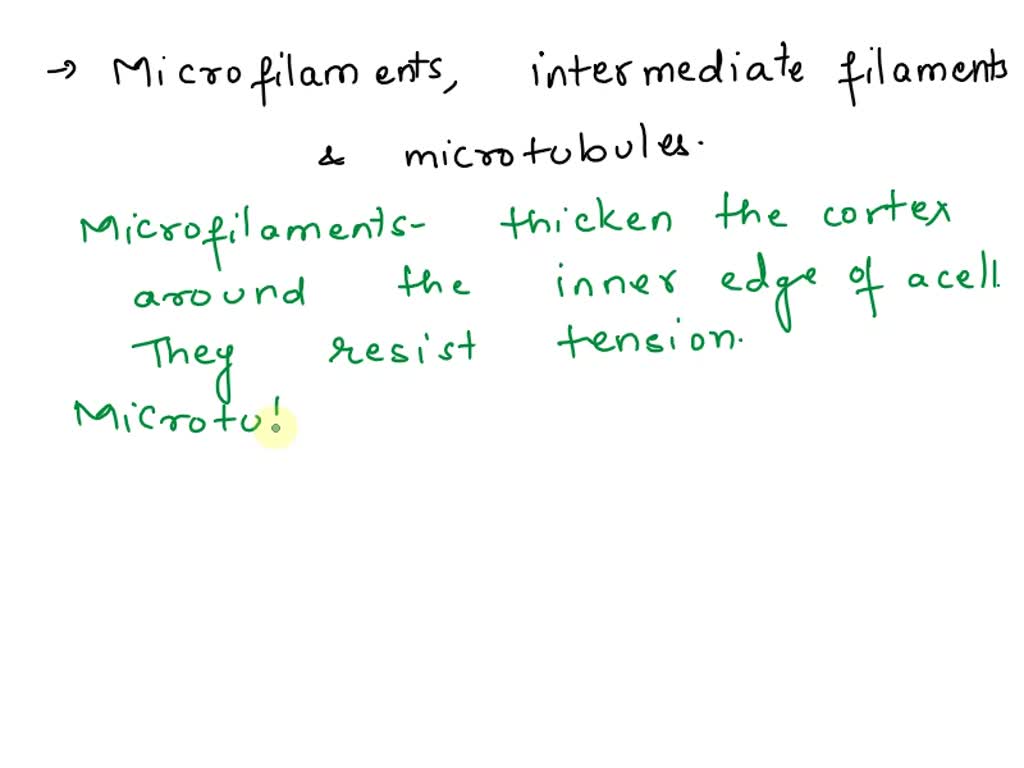 → Microfilaments, intermediate filaments
& microtubules.
Microfilaments- thicken the cortex
around the inner edge of a cell.
They resist tension.
Microtu